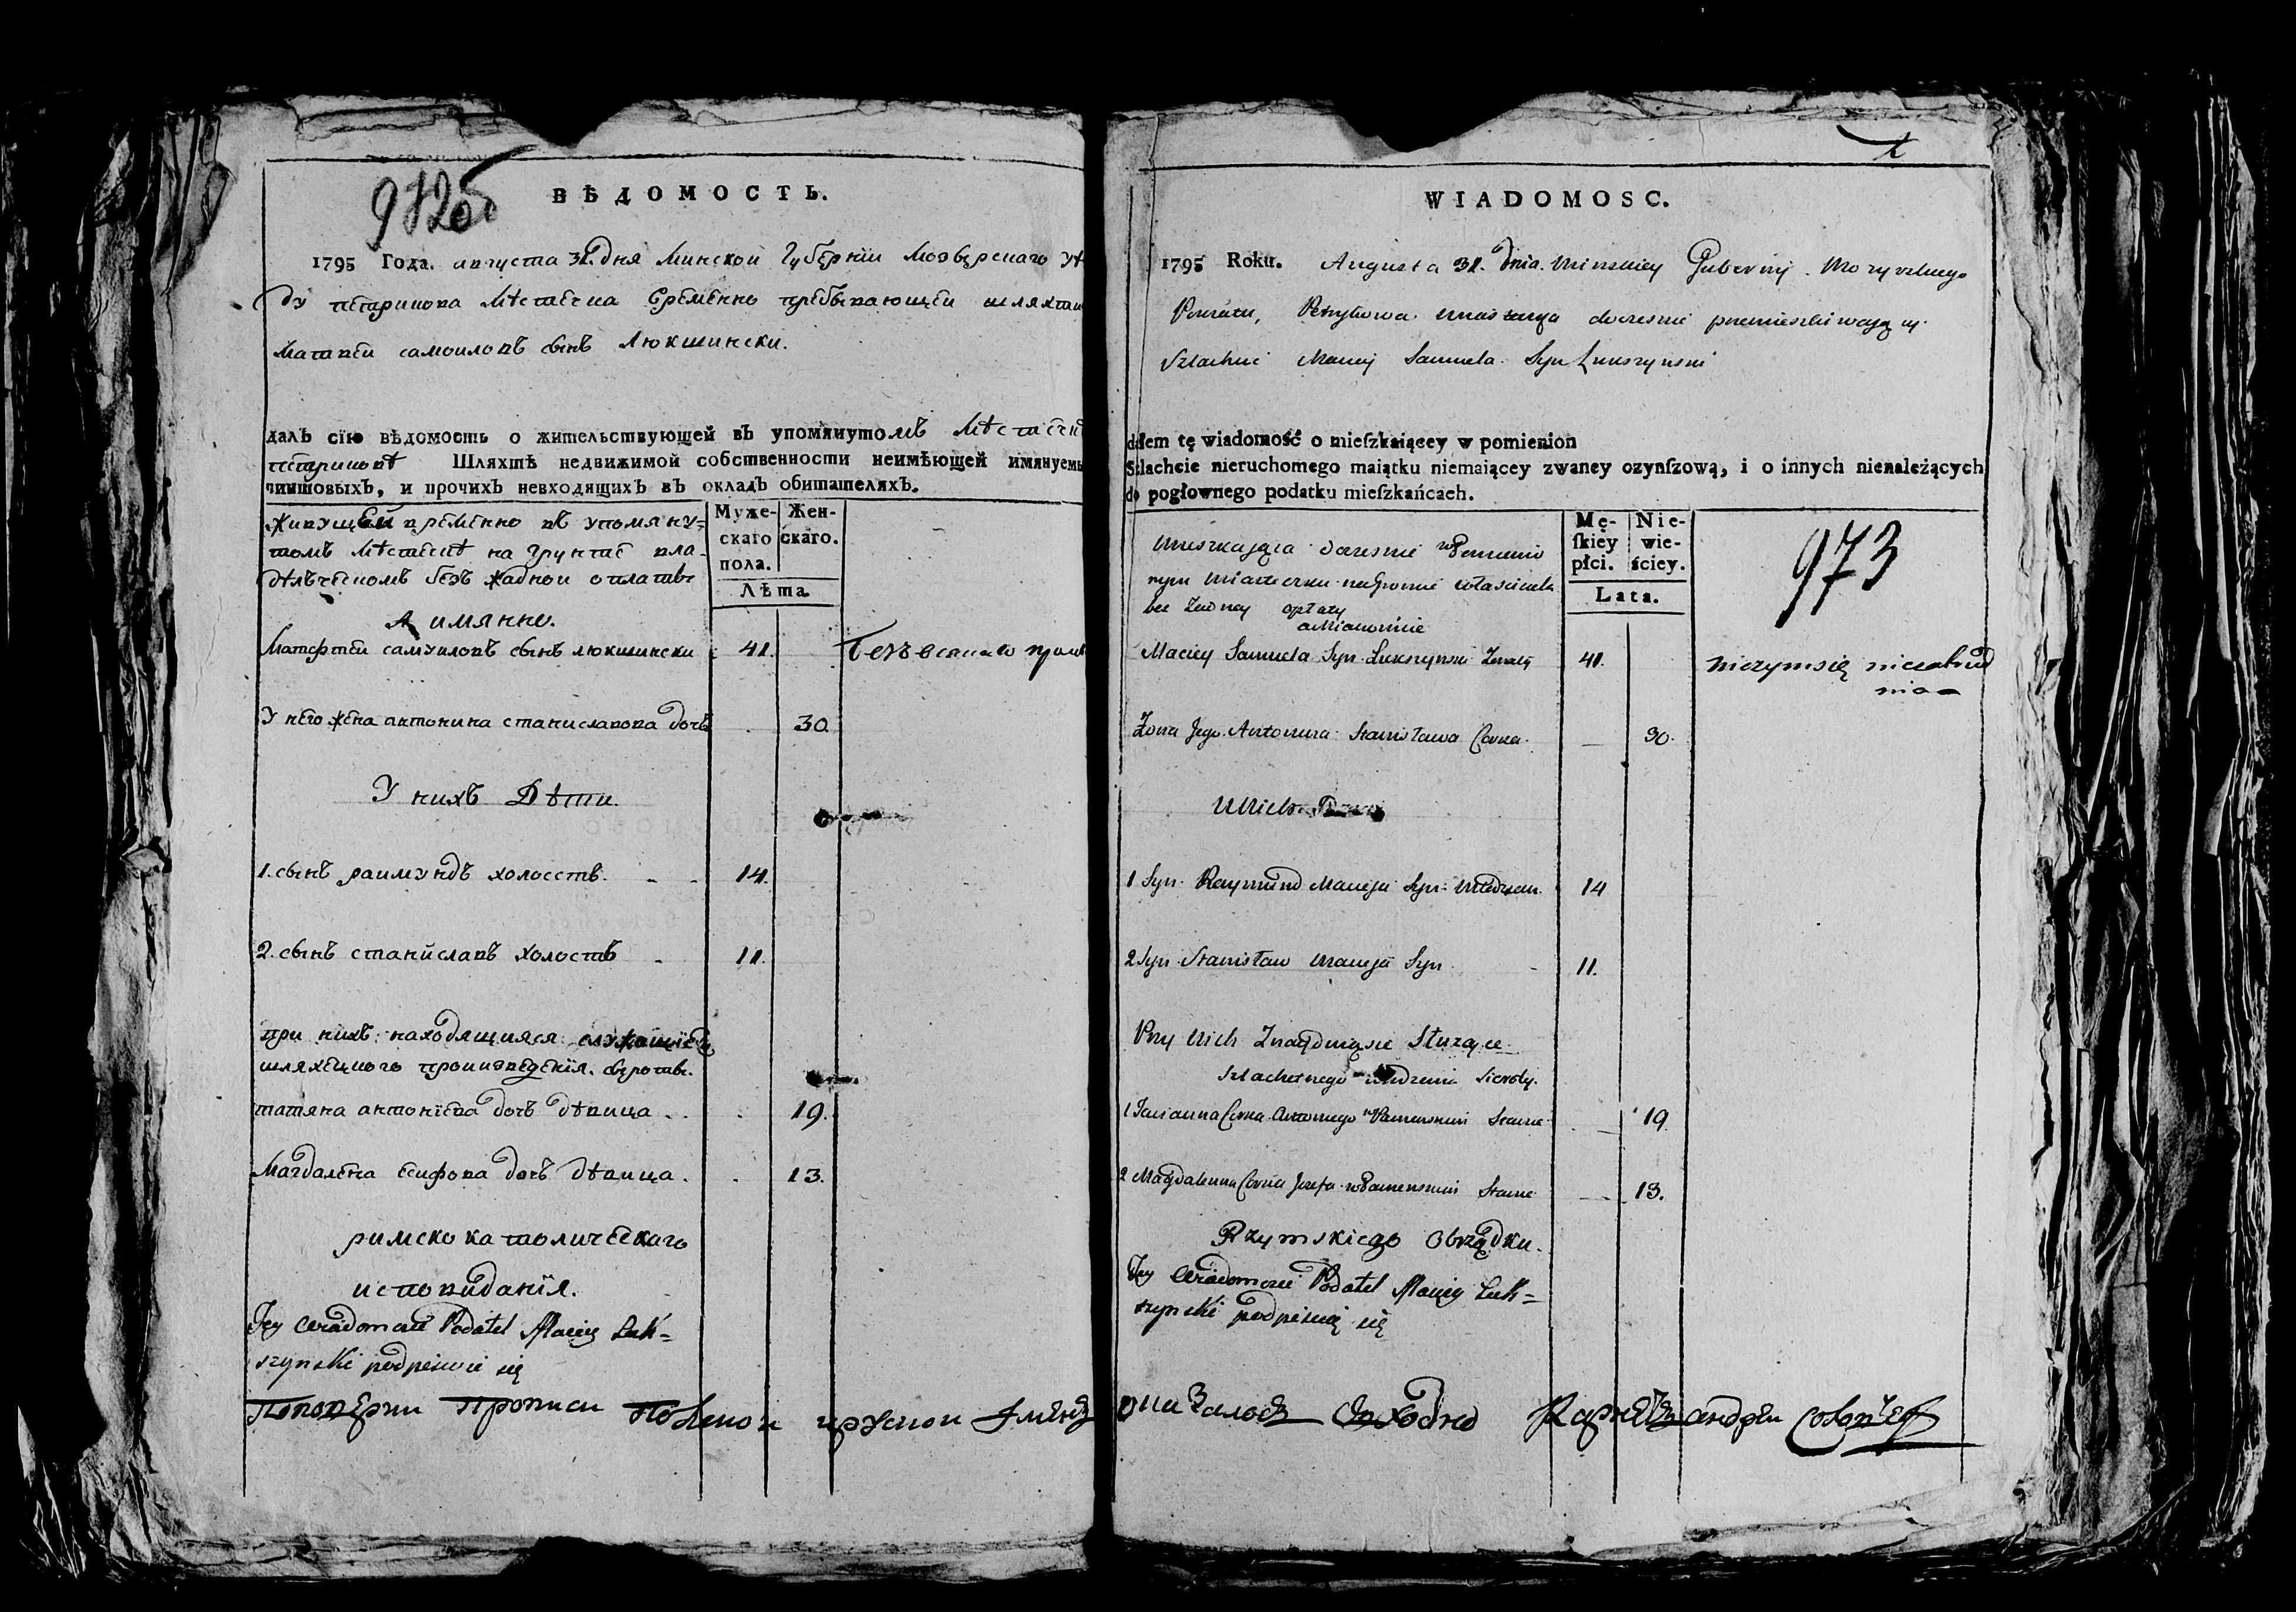 972об
ВѢДОМОСТЬ.
1795 Года. августа 31. дня Минской Губернїи Мозырскаго уѣ
ду петрикова Мѣстечка временно пребывающей шляхтич
Матвей самоиловъ сынъ Люкшински.
далъ сїю вѣдомость о жительствующей въ упомянутомъ Мѣстечке
петрикове Шляхтѣ недвижимой собственности неимѣющей имянуемы
чиншовыхъ, и прочихъ невходящихъ въ окладъ обитателяхъ.
живущей временно въ упомяну-
томъ Мѣстечке на грунте вла-
дѣлческомъ безъ жадной оплаты
А имянно.
Муже-
скаго
пола.
Жен-
скаго.
Лѣта
Матфтей самуиловъ сынъ люкшински 41.
У него жена антонина станиславова дочь 30
У нихъ Дѣти.
1. сынъ раимундъ холостъ. 14.
2. сынъ станиславъ холостъ 11.
при нихъ находящияся служащїе
шляхецкого произведенїя. сыроты.
татяна антонїева дочъ дѣвица 19.
Магдалена есифова дочъ дѣвица. 13.
римско католическаго
исповиданїя.
Tey Wiadomosci Podatel Maciey Łuk=
szynski podpisuie się
WIADOMOSC.
1795 Roku. Augusta 31. dnia. Minskiey Gubernij. Mozyrskiego
Powiatu, Petrykowa Miasteczka docresnie pomieszkiwaiący
Szlachcic Maciej Samuela Syn Łukszynski
dałem tę wiadomość o mieſzkaiącey w pomienion
Szlachcie nieruchomego maiątku niemaiącey zwaney czynſzową, i o innych nienależących
do pogłownego podatku mieſzkańcach.
Mieszkaiąca docresnie w Pomienio
nym Miasteczku na Groncie własciciela
bez żadney opłaty
a Mianowicie
Mę-
ſkiey
płci.
Nie-
wie-
ściey.
Lata.
973
Maciey Samuela Syn Łukszynski Zonaty 41. niczym się niezabud
nia
Żona Jego Antonina Stanisława Corka 30.
U Nich
1 Syn Raymund Macieja Syn Młodzian 14
2 Syn Stanisław Macieja Syn 11.
Przy Nich Znayduiące się Służące
Szlachetnego Sieroty.
1 Tacianna Corka Antoniego w Panienskim Stanie 19
2 Magdalenna Corka Jozefa w Panienskim Stanie 13.
Rzymskiego Obrządku.
Tey Wiadomosci Podatel Maciey Łuk=
szynski podpisuię się